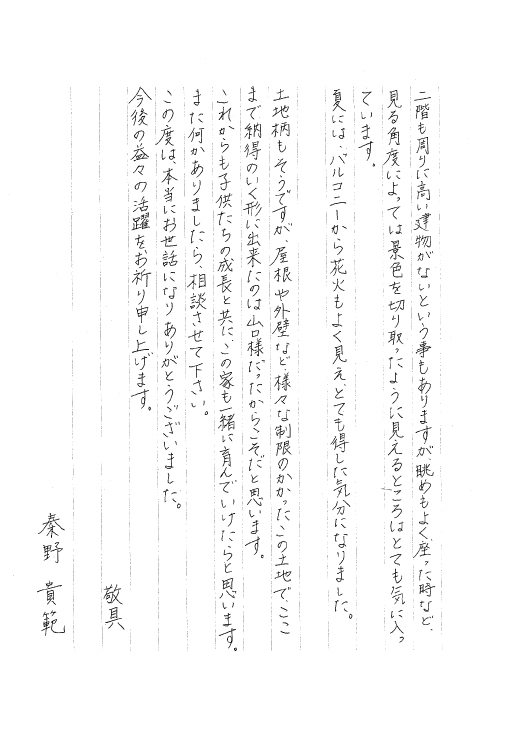 二階も周りに高い建物がないという事もありますが眺めもよく座った時など、
見る角度によっては景色を切り取ったように見えるところはとても気に入っ
ています。
夏には、バルコニーから花火もよく見え、とても得した気分になりました。
土地柄もそうですが、屋根や外壁など、様々な制限のかかったこの土地で、ここ
まで納得のいく形に出来たのは山口様だったからこそだと思います。
これからも子供たちの成長と共に、この家も一緒に育んでいけたらと思います。
また何かありましたら、相談させて下さい。
この度は、本当にお世話になりありがとうございました。
今後の益々の活躍を、お祈り申し上げます。
敬具
秦野 貴範